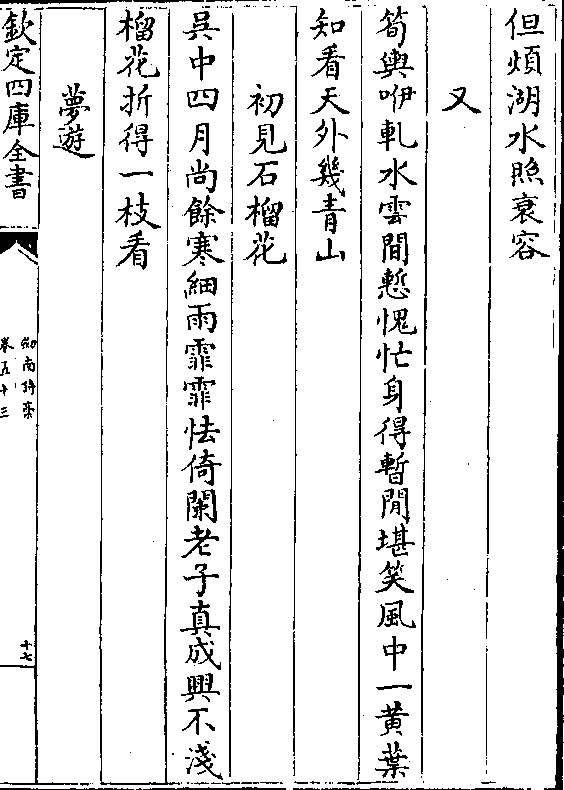 但煩湖水照衰容
又
筍輿咿軋水雲間慙愧忙身得暫閒堪笑風中一黃葉
知看天外幾青山
初見石榴花
吳中四月尚餘寒細雨霏霏怯倚闌老子真成興不淺
榴花折得一枝看
夢遊
欽定四庫全書
劔南詩藁
卷五十三
十七